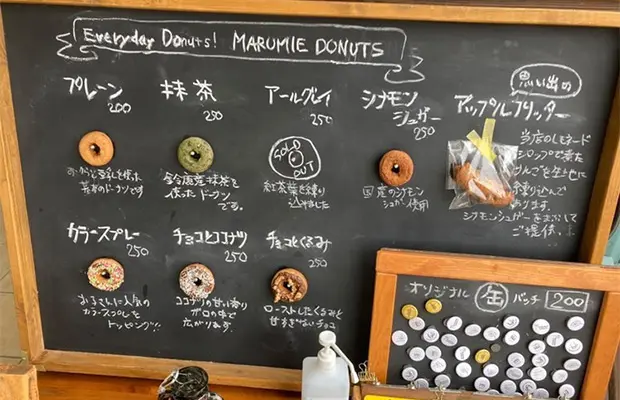 Everyday Donuts! MARUMIE DONUTS
プレーン
200
おからと豆乳を使った
基本のドーナツです
抹茶
250
使ったドーナツ
です。
アールグレイ
250
SOLD OUT
紅茶葉を練り
込みました
シナモン
シュガー
250
国産のシナモン
シュガー使用
思い出の
アップルフリッター
当店のレモネード
シロップで煮た
りんごを生地に
練り込んで
あります。
シナモンシュガーをまぶして
ご提供。
カラースプレー
250
お子さんに人気の
カラースプレーを
トッピング!!
チョコとココナツ
250
ココナツの甘い香り
がロの中で
広がります
チョコとくるみ
250
ローストしたくるみと
甘すぎないチョコ
オリジナル 缶 バッチ 200